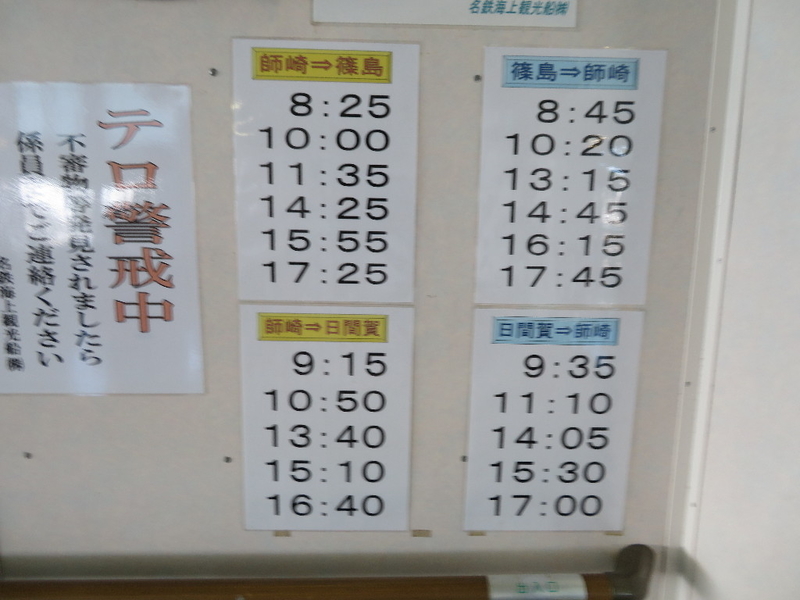 名鉄海上観光船㈱
テロ警戒中
不審物等発見されましたら
係員までご連絡ください
名鉄海上観光船㈱
師崎⇒篠島
8:25
10:00
11:35
14:25
15:55
17:25
篠島⇒師崎
8:45
10:20
13:15
14:45
16:15
17:45
師崎⇒日間賀
9:15
10:50
13:40
15:10
16:40
日間賀⇒師崎
9:35
11:10
14:05
15:30
17:00
出入口